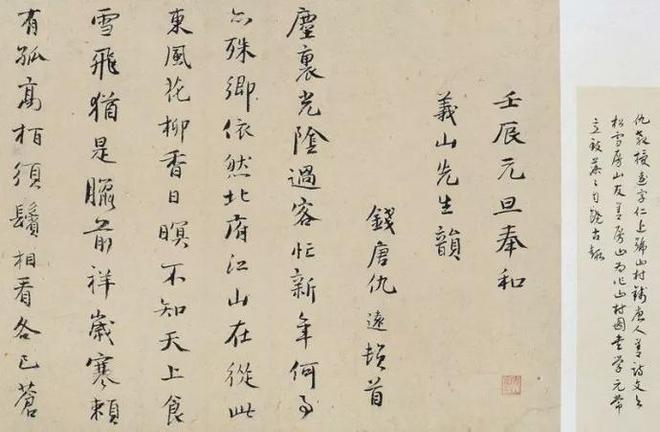 仇教授遠字仁近號山村錢唐人善詩文與
松雪房山友善房山為作山村圖書學元常
自饒古趣
壬辰元旦奉和
義山先生韻
錢唐仇遠頓首
塵裏光陰過客忙新年何事
殊鄉依然北府江山在從此
東風花柳香日暝不知天上食
雪飛猶是臘前祥歲寒賴
有孤高栢須鬢相看各已蒼